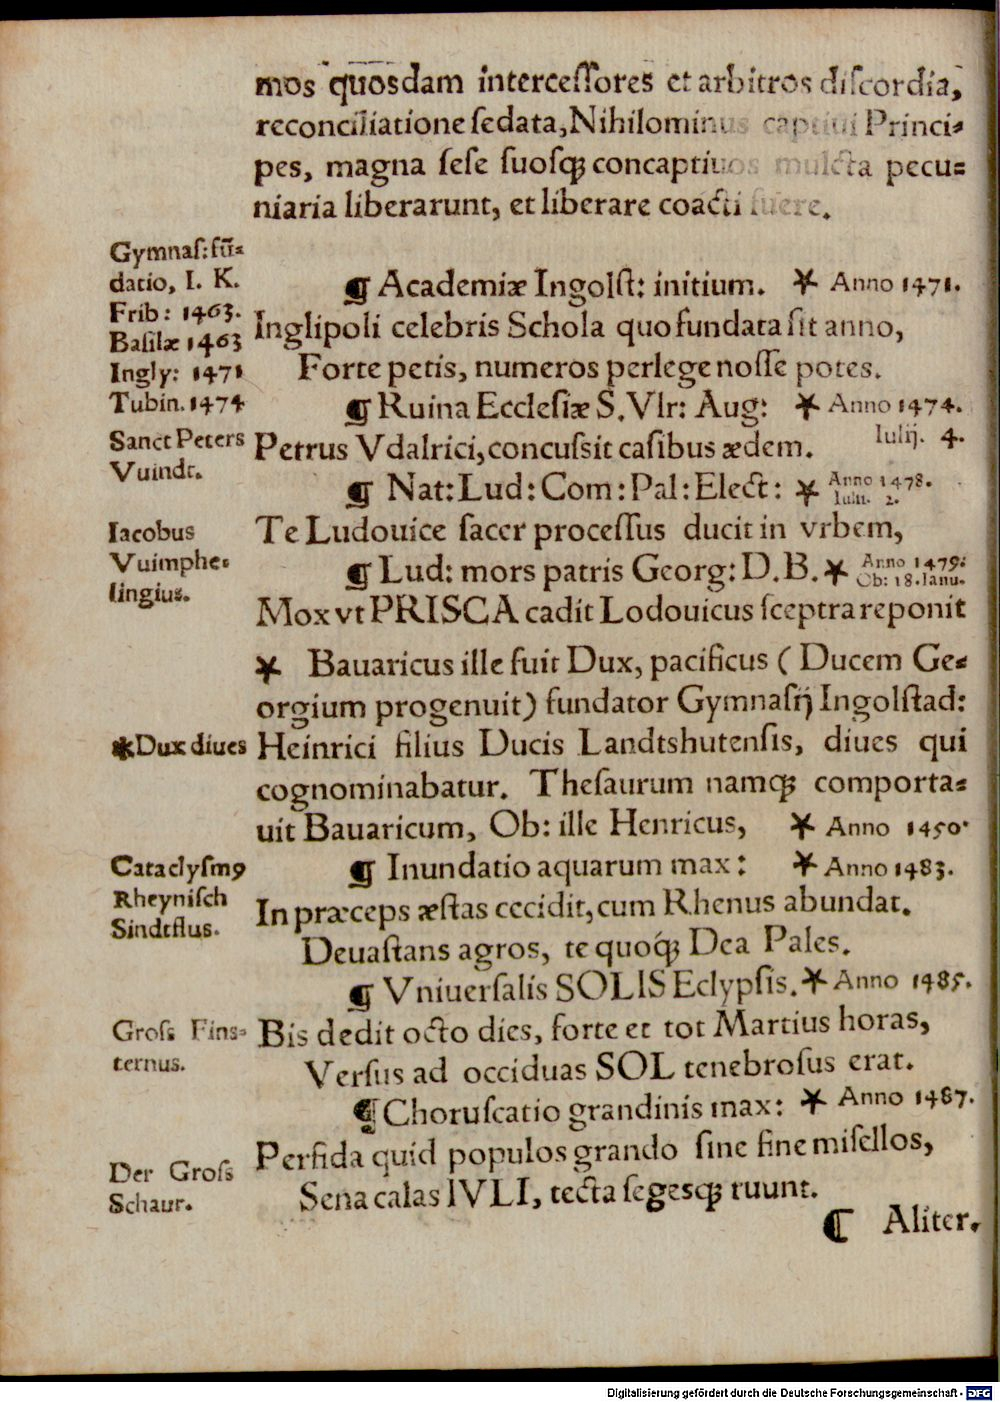 mos quosdam interceſſores et arbitros diſcordia,
reconciliatione ſedata, Nihilominus captiui Princi⸗
pes, magna ſeſe ſuoſqꝫ concaptiuos mulcta pecu⸗
niaria liberarunt, et liberare coacti fuere.
Gymnaſ: fū⸗
datio, I. K.
Frib: 1463.
Baſilæ 1463
Ingly: 1471
Tubin. 1474
¶ Academiæ Ingolſt: initium. * Anno 1471.
Inglipoli celebris Schola quo fundata ſit anno,
Forte petis, numeros perlege noſſe potes.
¶ Ruina Eccleſiæ S. Vlr: Aug: * Anno 1474.
Iulij. 4.
Sanct Peters
Vuindt.
Petrus Vdalrici, concuſsit caſibus ædem.
¶ Nat: Lud: Com: Pal: Elect: * Anno 1478.
Iulii. 2.
Iacobus
Vuimphe⸗
lingius.
Te Ludouice ſacer proceſſus ducit in vrbem,
¶ Lud: mors patris Georg: D. B. * Anno 1479:
Ob: 18. Ianu.
Mox vt PRISCA cadit Lodouicus ſceptra reponit
* Bauaricus ille fuit Dux, pacificus ( Ducem Ge⸗
orgium progenuit) fundator Gymnaſij Ingolſtad:
*Dux diues
Heinrici filius Ducis Landtshutenſis, diues qui
cognominabatur. Theſaurum namqꝫ comporta⸗
uit Bauaricum, Ob: ille Henricus, * Anno 1450.
Cataclyſmꝰ
Rheyniſch
Sindtflus.
¶ Inundatio aquarum max: * Anno 1483.
In præceps æſtas cecidit, cum Rhenus abundat.
Deuaſtans agros, te quoqꝫ Dea Pales.
¶ Vniuerſalis SOLIS Eclypſis. * Anno 1485.
Groſs Fins⸗
ternus.
Bis dedit octo dies, forte et tot Martius horas,
Verſus ad occiduas SOL tenebroſus erat.
¶ Choruſcatio grandinis max: * Anno 1487.
Der Groſs
Schaur.
Perfida quid populos grando ſine fine miſellos,
Sena calas IVLI, tecta ſegesqꝫ ruunt.
¶ Aliter.
Digitalisierung gefördert durch die Deutsche Forschungsgemeinschaft - DFG